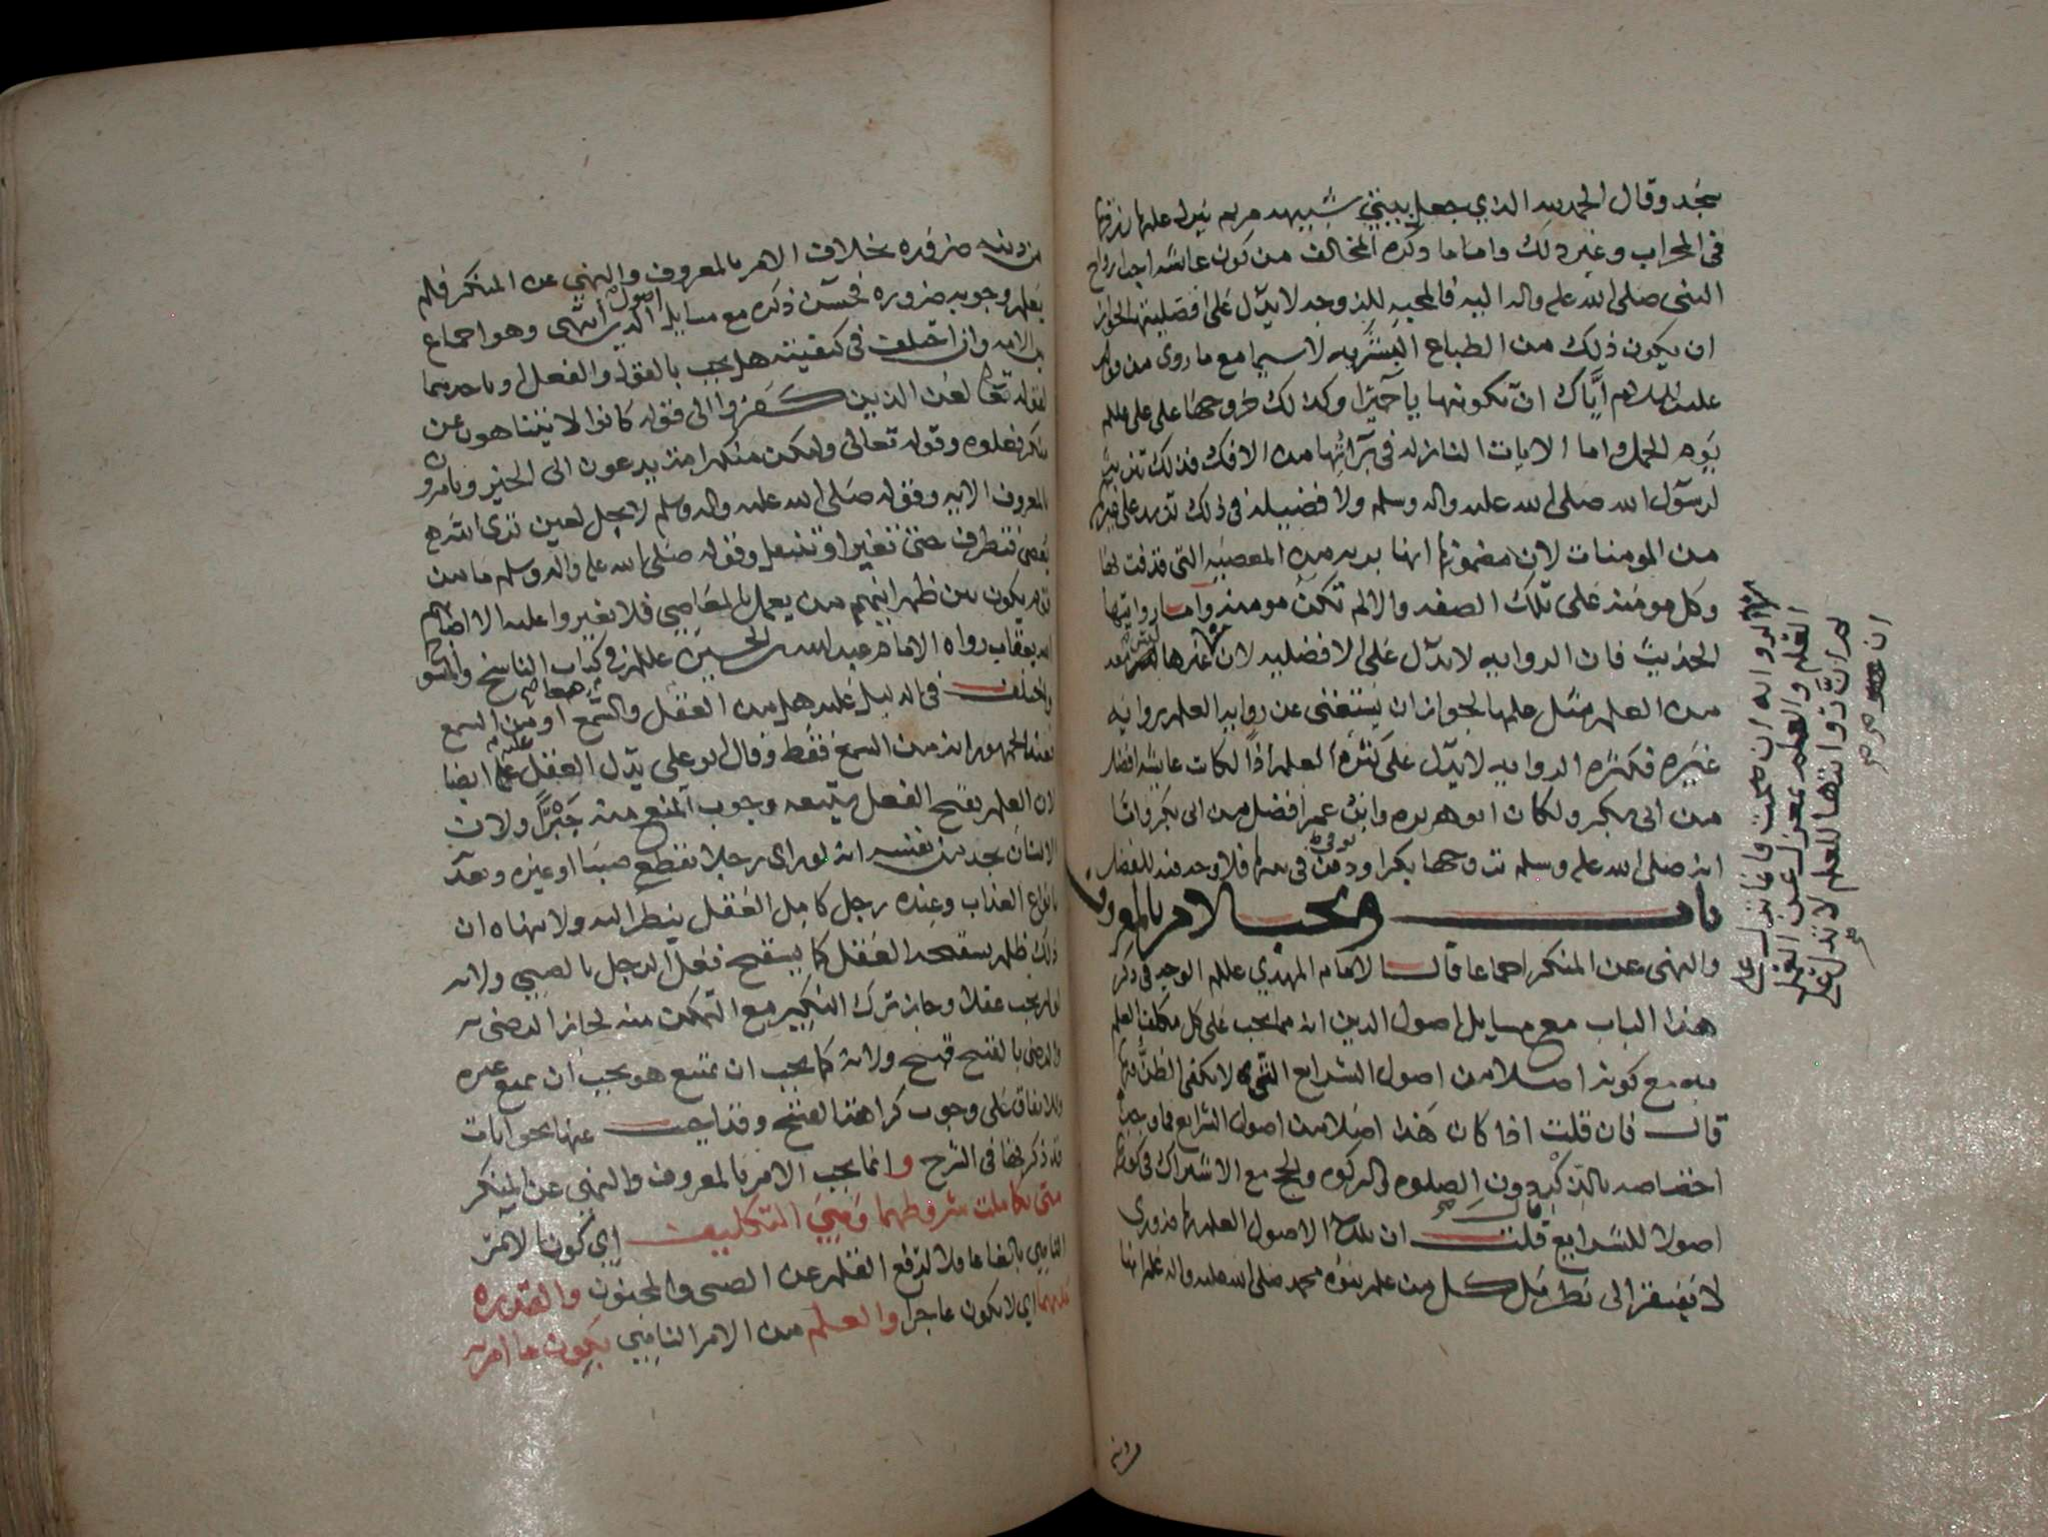 سجد وقال الحمد لله الذي جعل بنتي شبيهه مريم ينزل عليها رزقها
في المحراب وغير ذلك واما ما ذكره المخالف من كون عائشه احب ازواج
النبي صلى الله عليه واله اليه فالمحبه للزوجه لا يدل على افضليتها لجواز
ان يكون ذلك من الطباع البشريه لا سيما مع ما روى من قوله
عليه السلام اياك ان تكونيها يا حميرا وكذلك خروجها على علي عليلم
يوم الجمل واما الايات النازله في برائتها من الافك فذلك تنزيه
لرسول الله صلى الله عليه واله وسلم ولا فضيله في ذلك تزيد على غيرها
من المومنات لان مضمونها انها بريه من المعصيه التي قذفت بها
وكل مومنه على تلك الصفه والا لم تكن مومنه واما روايتها
الحديث فان الروايه لا تدل على الافضليه لان غيرها
من العلم مثل علمها لجواز ان يستغنى عن روايه العلم بروايه
غيره فكثره الروايه لا يدل على كثره العلم اذا لكانت عايشه افضل
من ابي بكر ولكان ابو هريره وابن عمر افضل من ابي بكر واما
انه صلى الله عليه وسلم تزوجها بكرا ودفن في بيتها فلا وجه فيه للفضل
باب ويجب الامر بالمعروف
والنهي عن المنكر اجماعا قال الامام المهدي عليلم الوجه في ذكر
هذا الباب مع مسايل اصول الدين انه مما يجب على كل مكلف العلم
به مع كونه اصلا من اصول الشرايع التي لا يكفي الظن فيها
قال فان قلت اذا كان هذا اصلا من اصول الشرايع فما وجه
اختصاصه بالذكر دون الصلوه والزكوه والحج مع الاشتراك في كونها
اصولا للشرايع قلت ان تلك الاصول العلم بها ضروري
لا يفتقر الى نظر بل كل من علم نبوه محمد صلى الله عليه واله علم انها
من دينه ضروره بخلاف الامر بالمعروف والنهي عن المنكر فلم
يعلم وجوبه ضروره فحسن ذكره مع مسايل اصول الدين انتهى وهو اجماع
بين الامه وان اختلف في كيفيته هل يجب بالقول والفعل او باحدهما
لقوله تعالى لعن الذين كفروا الى قوله كانوا لا يتناهون عن
منكر فعلوه وقوله تعالى ولتكن منكم امه يدعون الى الخير ويامرون
بالمعروف الايه وقوله صلى الله عليه واله وسلم لا يحل لعين ترى الله
يعصى فتطرف حتى تغير او تنتقل وقوله صلى الله عليه واله وسلم ما من
قوم يكون بين ظهرانيهم من يعمل بالمعاصي فلا يغيروا عليه الا اصابهم
الله بعقاب رواه الامام عبد الله بن الحسين عليلم في كتاب الناسخ والمنسوخ
واختلف في الدليل عليه هل من العقل والسمع معا او من السمع
فعند الجمهور انه من السمع فقط وقال ابو علي يدل العقل عليه ايضا
لان العلم بقبح الفعل يتبعه وجوب المنع منه جبرا ولان
الانسان يجد من نفسه انه لو راى رجلا يقطع صبيا او غيره ويعذبه
بانواع العذاب وعنده رجل كامل العقل ينظر اليه ولا ينهاه ان
ذلك ظلم يستقبحه العقل كما يستقبح فعل الرجل بالصبي ولانه
لو لم يجب عقلا وجاز ترك النكير مع التمكن منه لجاز الرضى به
والرضى بالقبيح قبيح ولانه كما يجب ان يمتنع هو يجب ان يمنع غيره
وللاتفاق على وجوب كراهتنا لقبيح وقد اجيب عنها بجوابات
قد ذكرتها في الشرح وانما يجب الامر بالمعروف والنهي عن المنكر
متى تكاملت شروطهما وهي التكليف اي كون الامر
الناهي بالغا عاقلا لرفع القلم عن الصبي والمجنون والقدره
عليهما اي لا يكون عاجزا والعلم من الامر الناهي بكون ما امر به